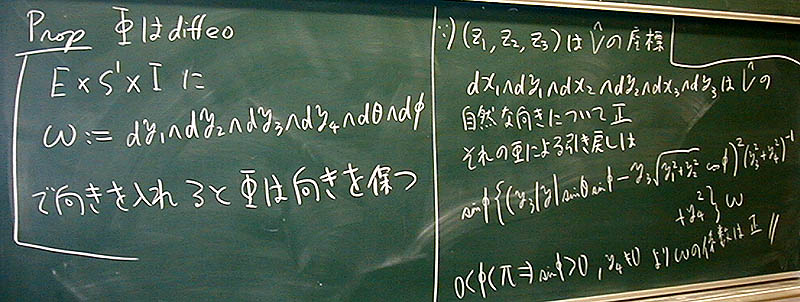 Prop Φはdiffeo
E×S¹×Iに
ω := dy₁∧dy₂∧dy₃∧dy₄∧dθ∧dφ
で向きを入れるとΦは向きを保つ
∵) (z₁, z₂, z₃)はV̂の座標
dx₁∧dy₁∧dx₂∧dy₂∧dx₃∧dy₃はV̂の
自然な向きについて正
それのΦによる引き戻しは
sinφ{(y₃|y|sinθsinφ−y₃√(y₁²+y₂²) cosφ)²(y₃²+y₄²)⁻¹
+y₄²}ω
0<φ<π⇒sinφ>0, y₄≠0よりωの係数は正 //